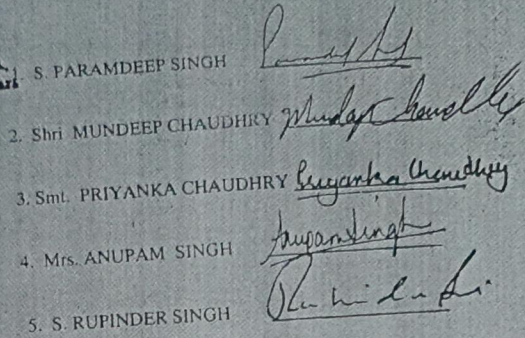 1. S. PARAMDEEP SINGH
2. Shri MUNDEEP CHAUDHRY Mundeep Chaudhry
3. Smt. PRIYANKA CHAUDHRY Priyanka Chaudhry
4. Mrs. ANUPAM SINGH Anupam Singh
5. S. RUPINDER SINGH